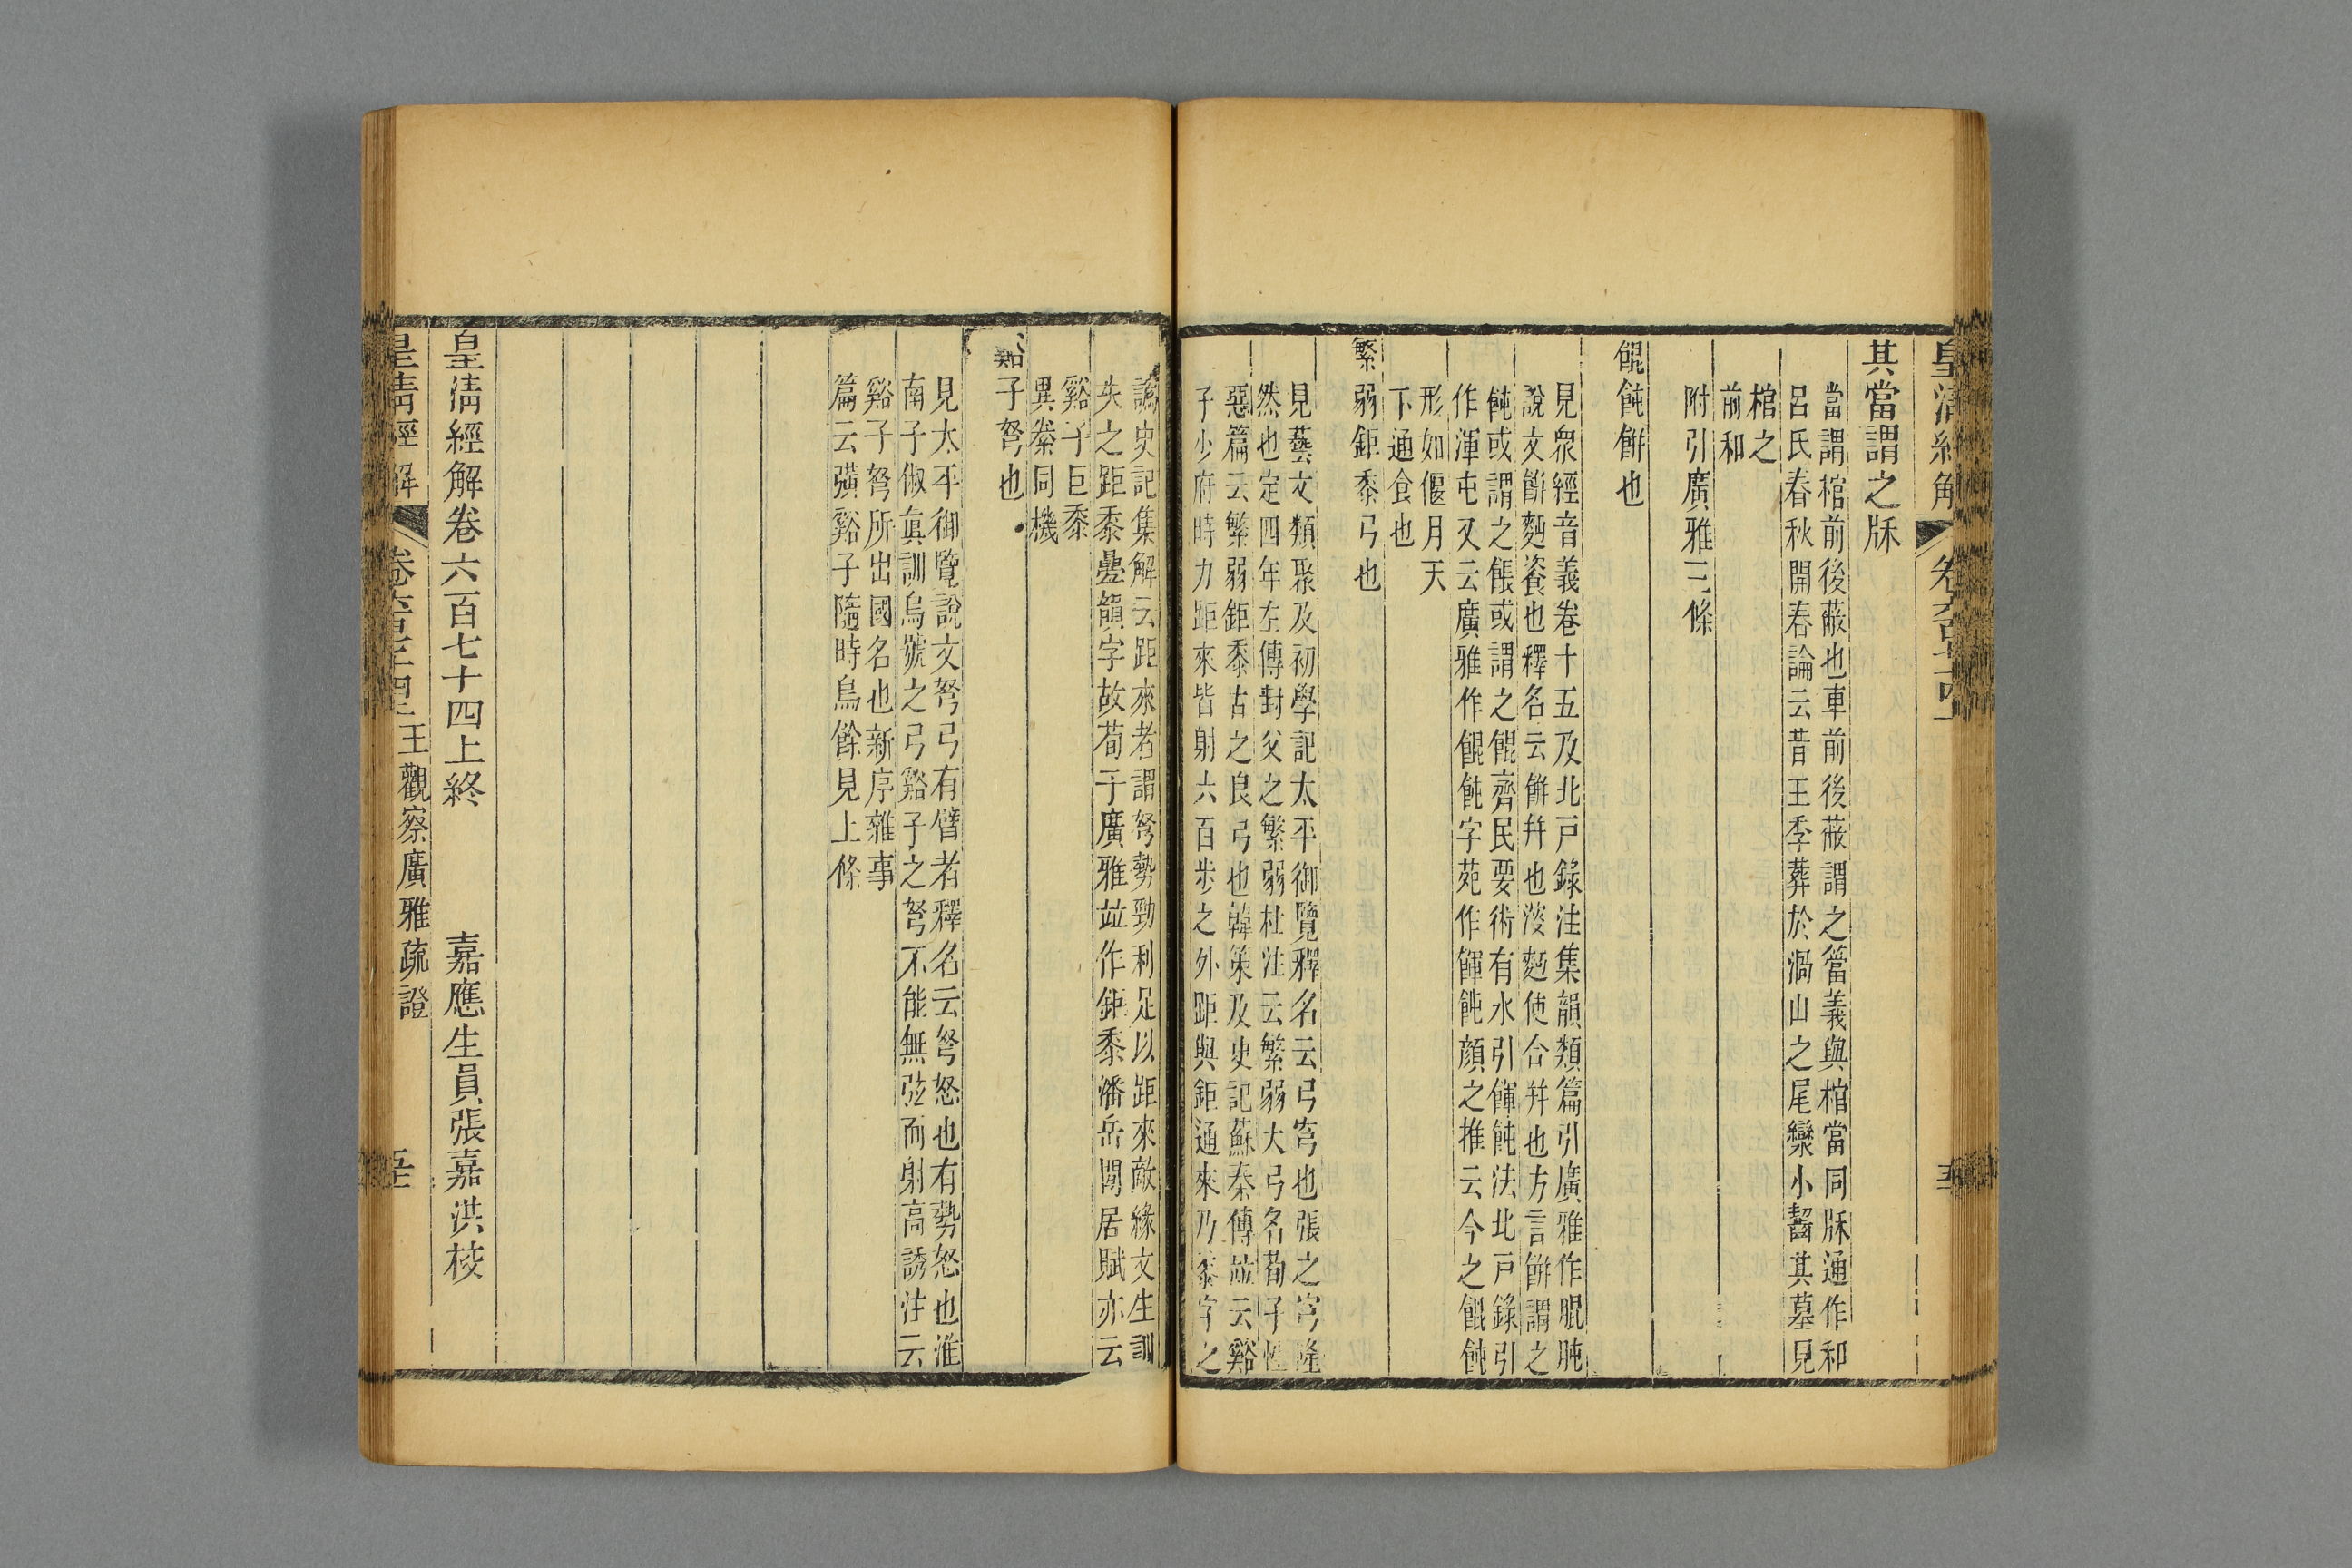 皇清經解
其當謂之牀
當謂棺前後蔽也車前後蔽謂之簹義與棺當同牀通作和
呂氏春秋開春論云昔王季葬於渦山之尾欒水齧其墓見
棺之
前和
附引廣雅三條
餛飩餅也
見眾經音義卷十五及北戶錄注集韻類篇引廣雅作䐊肫
說文餅麪餈也釋名云餅幷也溲麪使合幷也方言餅謂之
飩或謂之餦或謂之餛齊民要術有水引餫飩法北戶錄引
作渾屯又云廣雅作餛飩字苑作餫飩顏之推云今之餛飩
形如偃月天
下通食也
繁弱鉅黍弓也
見藝文類聚及初學記太平御覽釋名云弓穹也張之穹隆
然也定四年左傳封父之繁弱杜注云繁弱大弓名荀子性
惡篇云繁弱鉅黍古之良弓也韓策及史記蘇秦傳竝云谿
子少府時力距來皆射六百步之外距與鉅通來乃黍字之
譌史記集解云距來者謂弩勢勁利足以距來敵緣文生訓
失之距黍疊韻字故荀子廣雅竝作鉅黍潘岳閒居賦亦云
谿子巨黍
異絭同機
谿子弩也
見太平御覽說文弩弓有臂者釋名云弩怒也有勢怒也淮
南子俶眞訓烏號之弓谿子之弩不能無弦而射高誘注云
谿子弩所出國名也新序雜事
篇云彊谿子隨時烏餘見上條
皇清經解卷六百七十四上終 嘉應生員張嘉洪校
皇清經解 王觀察廣雅疏證